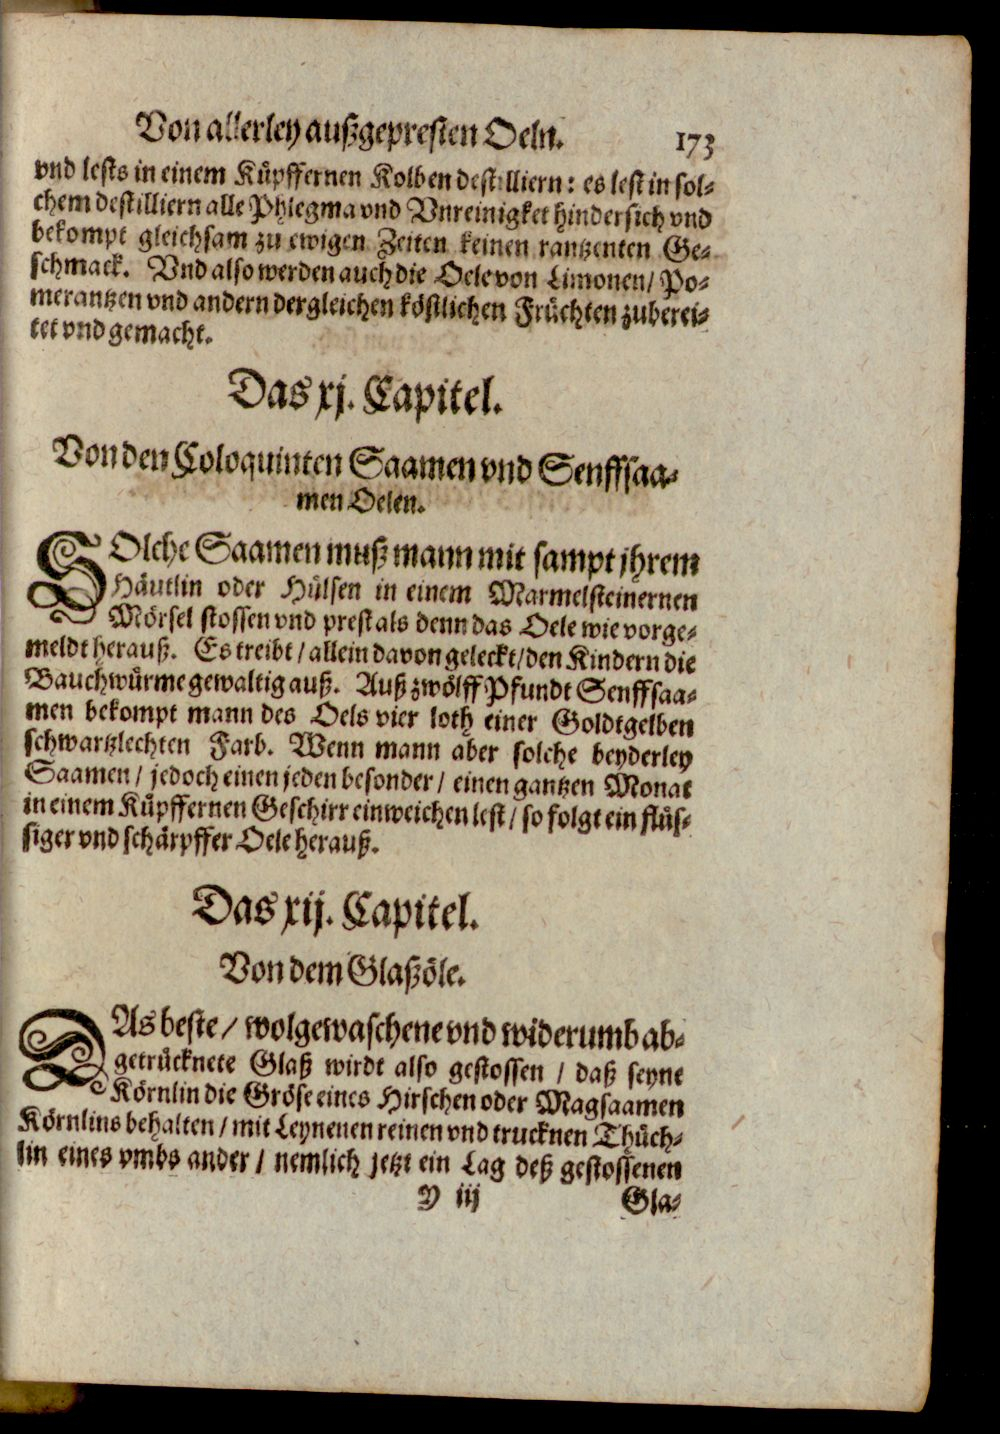 Von allerley außgepresten Oeln. 173
vnd lests in einem Küpffernen Kolben destilliern: es lest in sol-
chem destilliern alle Phlegma vnd Vnreinigket hindersich vnd
bekompt gleichsam zu ewigen Zeiten keinen rantzenten Ge-
schmack. Vnd also werden auch die Oele von Limonen/ Po-
merantzen vnd andern dergleichen köstlichen Früchten zuberei-
tet vnd gemacht.
Das xj. Capitel.
Von den Coloquinten Saamen vnd Senffsaa-
men Oelen.
SOlche Saamen muß mann mit sampt jhrem
Häutlin oder Hülsen in einem Marmelsteinernen
Mörsel stossen vnd prest als denn das Oele wie vorge-
meldt herauß. Es treibt/ allein davon geleckt/ den Kindern die
Bauchwürme gewaltig auß. Auß zwölff Pfundt Senffsaa-
men bekompt mann des Oels vier loth einer Goldtgelben
schwartzlechten Farb. Wenn mann aber solche beyderley
Saamen/ jedoch einen jeden besonder/ einen gantzen Monat
in einem Küpffernen Geschirr einweichen lest/ so folgt ein flüs-
siger vnd schärpffer Oele herauß.
Das xij. Capitel.
Von dem Glaßöle.
DAs beste/ wolgewaschene vnd widerumb ab-
getrücknete Glaß wirdt also gestossen/ daß seyne
Körnlin die Gröse eines Hirschen oder Magsaamen
Körnlins behalten/ mit Leynenen reinen vnd trucknen Thüch-
lin eines vmbs ander/ nemlich jetzt ein Lag deß gestossenen
Y iij Gla-